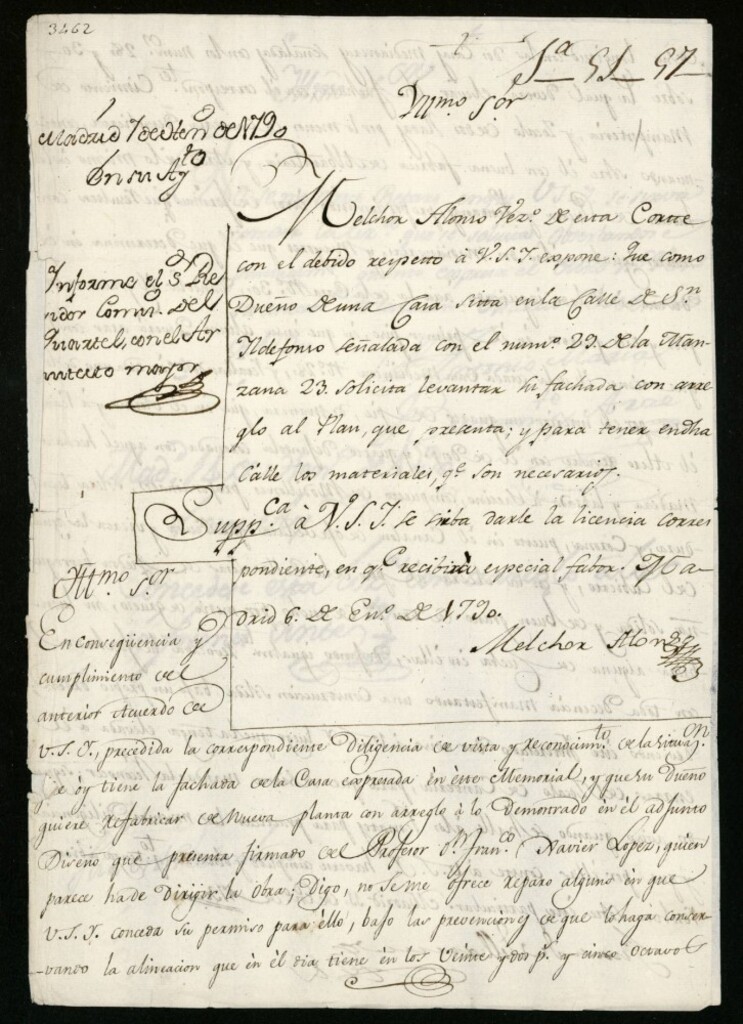 3462
1ª 51 57
Yllmo Sor
Madrid 7 de
En su Ayto
Melchor Alonso Vezº de esta Cortte
con el debido respetto à V.S.I. expone: Que como
Dueño de una Casa sitta en la Calle de Sn
Ildefonso señalada con el numº 29. de la Man-
zana 23. solicita levantar su fachada con arre-
glo al Plan, que presenta; y para tener en dha
Calle los materiales, qe son necesarios.
Suppca à V.S.I. se sirba darle la licencia corres-
pondiente, en qe recibirà especial fabor. Ma-
drid 6. de Enº de 1790.
Melchor Alonso
Informe el Sr Re
gidor Comº. del
Quartel, con el Ar
quitecto mayor
Yllmo Sor
En conseqüencia y
cumplimiento del
anterior Acuerdo de
V.S.I., precedida la correspondiente Diligencia de vista y reconocimto de la situazon
qe oy tiene la fachada de la Casa expresada èn este Memorial, y que su Dueño
quiere refabricar de nueva planta con arreglo à lo Demostrado èn èl adjunto
Diseño que presenta firmado del Profesor Dn Franco Xavier Lopez, quien
parece ha de Dirigir la òbra; Digo, no se me òfrece reparo alguno èn que
V.S.I. conceda su permiso para èllo, bajo las prevenciones de que lo haga conser-
-vando la alineacion que èn èl dia tiene èn los Veinte y dos ps. y cinco octavos